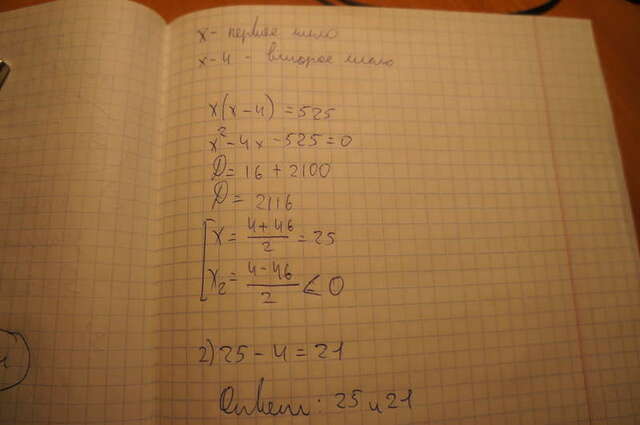 x - первое число
x - 4 - второе число
x(x-4) = 525
x² - 4x - 525 = 0
D = 16 + 2100
D = 2116
[x = (4+46)/2 = 25
x₂ = (4-46)/2 < 0
2) 25 - 4 = 21
Ответ: 25 и 21